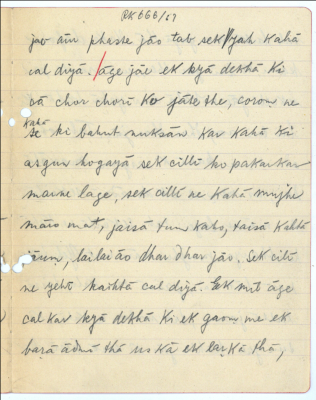 RK 666/27
jao āin phaste jāo tab sek yah kahā
cal diyā. āge jāe ek kyā dekhā ki
vā chor chorī ko jāte the, corom ne
kahā
se ki bahut nuksān kar kahā ki
asgun hogayā sek cillī ko pakarkar
marne lage, sek cillī ne kahā mujhe
māro mat, jaisā tum kaho, taisā kahtā
jāum, lailaiāo dhar dhar jāo. Sek cillī
ne yehī kahtā cal diyā. Ek mīl āge
cal kar kyā dekhā ki ek gaom me ek
baṛā ādmī thā us kā ek laṛkā thā,